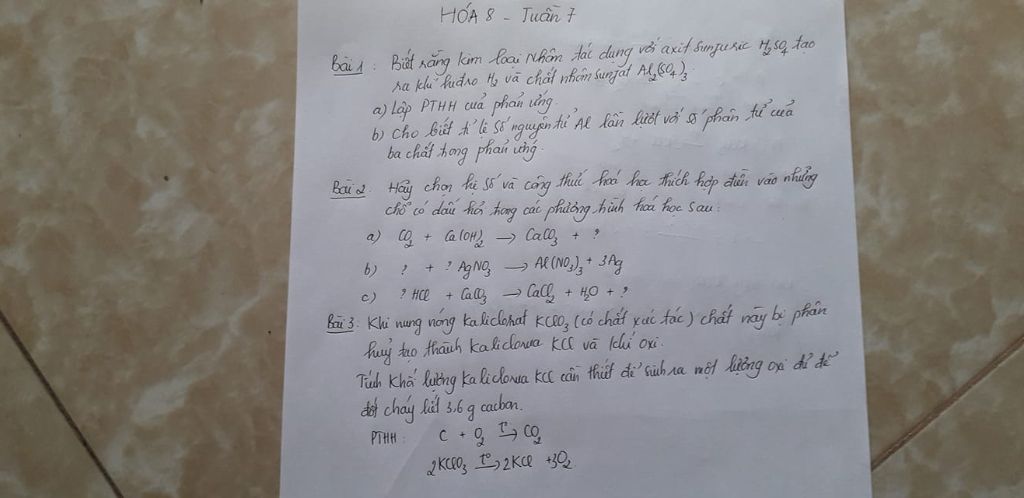 HÓA 8 - Tuần 7
Bài 1: Biết rằng kim loại Nhôm tác dụng với axit sunfuric H₂SO₄ tạo
ra khí hiđro H₂ và chất nhôm sunfat Al₂(SO₄)₃.
a) Lập PTHH của phản ứng.
b) Cho biết tỉ lệ số nguyên tử Al lần lượt với số phân tử của
ba chất trong phản ứng.
Bài 2. Hãy chọn hệ số và công thức hoá học thích hợp điền vào những
chỗ có dấu hỏi trong các phương trình hoá học sau:
a) CO₂ + Ca(OH)₂ → CaCO₃ + ?
b) ? + ? AgNO₃ → Al(NO₃)₃ + 3Ag
c) ? HCl + CaCO₃ → CaCl₂ + H₂O + ?
Bài 3. Khi nung nóng Kaliclorat KClO₃ (có chất xúc tác) chất này bị phân
huỷ tạo thành Kaliclorua KCl và khí oxi.
Tính khối lượng Kaliclorua KCl cần thiết để sinh ra một lượng oxi đủ để
đốt cháy hết 3,6 g cacbon.
PTHH: C + O₂ t° → CO₂
2KClO₃ t° → 2KCl + 3O₂